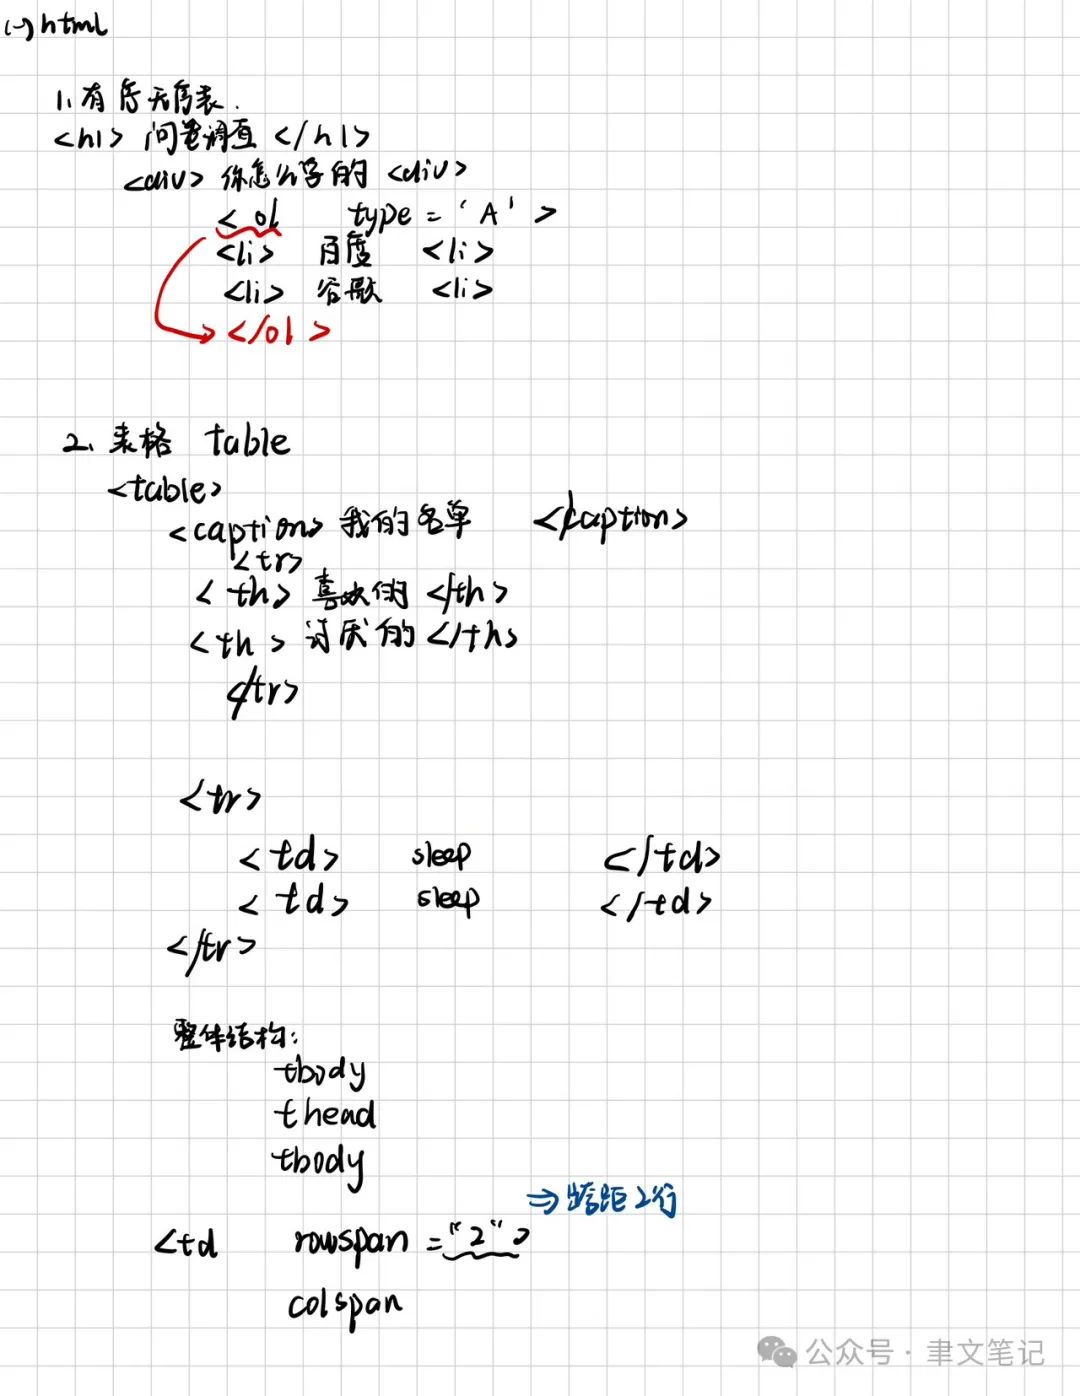 (一) html
1、有序无序表.
<h1> 问卷调查 </h1>
<div> 你怎么学的 <div>
<ol type = 'A' >
<li> 百度 <li>
<li> 谷歌 <li>
</ol>
2、表格 table
<table>
<caption> 我的名单 </caption>
<tr>
<th> 喜欢的 </th>
<th> 讨厌的 </th>
</tr>
<tr>
<td> sleep </td>
<td> sleep </td>
</tr>
整体结构:
tbody
thead
tbody
⇒ 跨距2行
<td rowspan = "2" >
colspan
公众号 · 聿文笔记